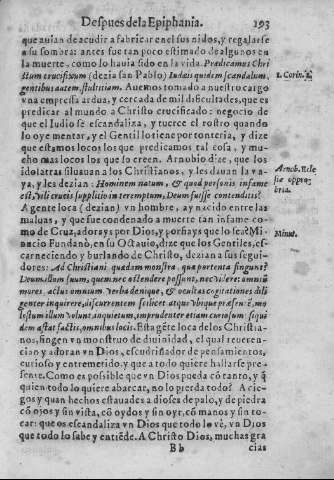 Despues dela Epiphania. 193
que auian de acudir a fabricar en el sus nidos, y regalarse
a su sombra: antes fue tan poco estimado de algunos en
la muerte, como lo hauia sido en la vida. Predicamus Chri
stum crucifixum (dezia san Pablo) Iudæis quidem scandalum,
1. Corin. 1.
gentibus autem, stultitiam. Auemos tomado a nuestro cargo
vna empressa ardua, y cercada de mil dificultades, que es
predicar al mundo a Christo crucificado: negocio de
que el Iudio se escandaliza, y tuerce el rostro quando
lo oye mentar, y el Gentil lo tiene por tonteria, y dize
que estamos locos los que predicamos tal cosa, y mu-
cho mas locos los que lo creen. Arnobio dize, que los
idolatras siluauan a los Christianos, y les dauan la va-
Arnob. Ecle
ya, y les dezian: Hominem natum, & quod personis infame
siæ oppro
est, vilis crucis supplicio interemptum, Deum fuisse contenditis?
bria.
A gente loca (dezian) vn hombre, ay nacido entre las
maluas, y que fue condenado a muerte tan infame co-
mo de Cruz, adorays por Dios, y porfiays que lo sea? Mi
Minut.
nucio Fundano, en su Octauio, dize que los Gentiles, es-
carneciendo y burlando de Christo, dezian a sus segui-
dores: Ad Christiani quædam monstra, quæ portenta fingunt?
Deum illum suum, quem nec ostendere possunt, nec videre: omniũ
mores, actus omnium, verba denique, & occultas cogitationes dili
genter inquirere, discurrentem scilicet atque vbique præsentẽ, mo
lestum illum volunt, inquietum, imprudenter etiam curiosum: siqui
dem astat factis, omnibus locis. Esta gẽte loca de los Christia-
nos, fingen vn monstruo de diuinidad, el qual reueren-
cian y adoran vn Dios, escudriñador de pensamientos,
curioso y entremetido, y que a todo lo quiere hallarse pre-
sente. Como es possible que vn Dios pueda cõ tanto, y q̃
quien todo lo quiere abarcar, no lo pierda todo? A cie-
gos y quan hechos estauades a dioses de palo, y de piedra
cõ ojos y sin vista, cõ oydos y sin oyr, cõ manos y sin to-
car: que os escandaliza vn Dios que todo lo vè, vn Dios
que todo lo sabe y entiẽde. A Christo Dios, muchas gra
B b cias